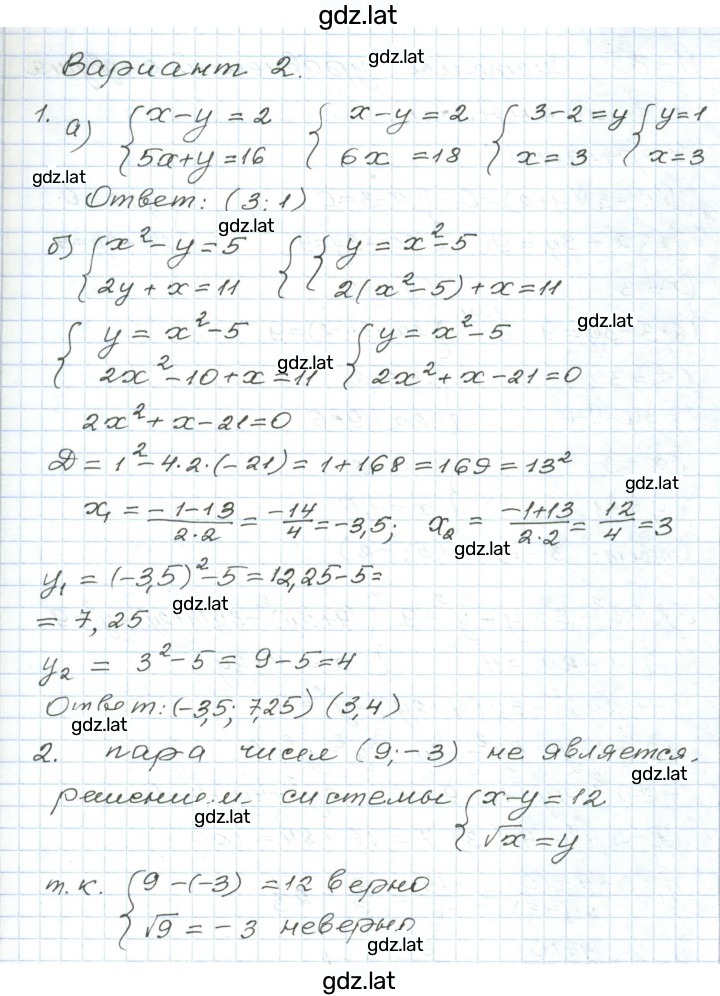 gdz.lat
Вариант 2.
gdz.lat
1. а) { x-y = 2 { x-y = 2 { 3-2=y { y=1
{ 5x+y=16 { 6x =18 { x=3 { x=3
gdz.lat
Ответ: (3:1)
gdz.lat
б) { x²-y=5 { { y = x²-5
{ 2y+x=11 { { 2(x²-5)+x=11
gdz.lat
{ y = x²-5 { y = x²-5
{ 2x²-10+x=11 { 2x²+x-21=0
gdz.lat
2x²+x-21=0
D = 1²-4·2·(-21) = 1+168 = 169 = 13²
gdz.lat
x₁ = (-1-13)/(2·2) = -14/4 = -3,5; x₂ = (-1+13)/(2·2) = 12/4 = 3
gdz.lat
y₁ = (-3,5)²-5 = 12,25-5=
gdz.lat
= 7,25
y₂ = 3²-5 = 9-5=4
Ответ: (-3,5; 7,25) (3,4)
gdz.lat
2. пара чисел (9;-3) не является
gdz.lat
решением системы { x-y=12
gdz.lat
{ √x = y
т.к. { 9-(-3) = 12 верно
{ √9 = -3 неверно
gdz.lat
gdz.lat